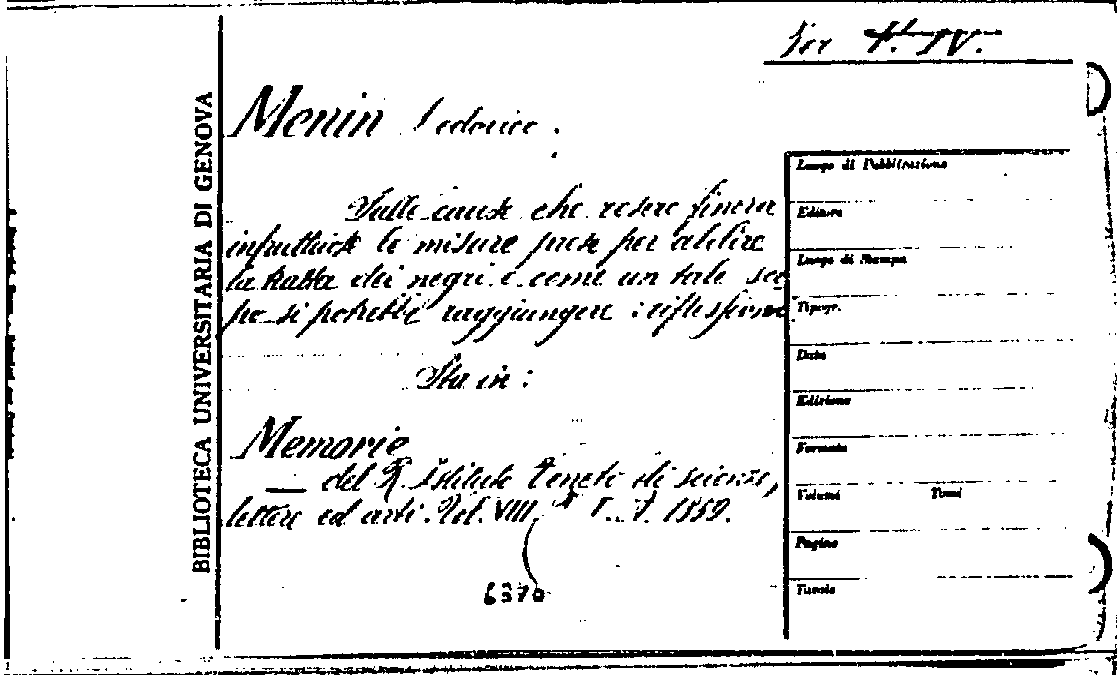 Ser 1.° IV.
BIBLIOTECA UNIVERSITARIA DI GENOVA
Menin Lodovico.
Sulle cause che resero finora
infruttuose le misure prese per abolire
la tratta dei negri e come un tale sco
po si potrebbe raggiungere: riflessioni.
Sta in:
Memorie
— del R. Istituto Veneto di scienze,
lettere ed arti. Vol. VIII, P. I. V. 1859.
6370
Luogo di Pubblicazione
Editore
Luogo di Stampa
Tipogr.
Data
Edizione
Formato
Volumi Tomi
Pagine
Tavole